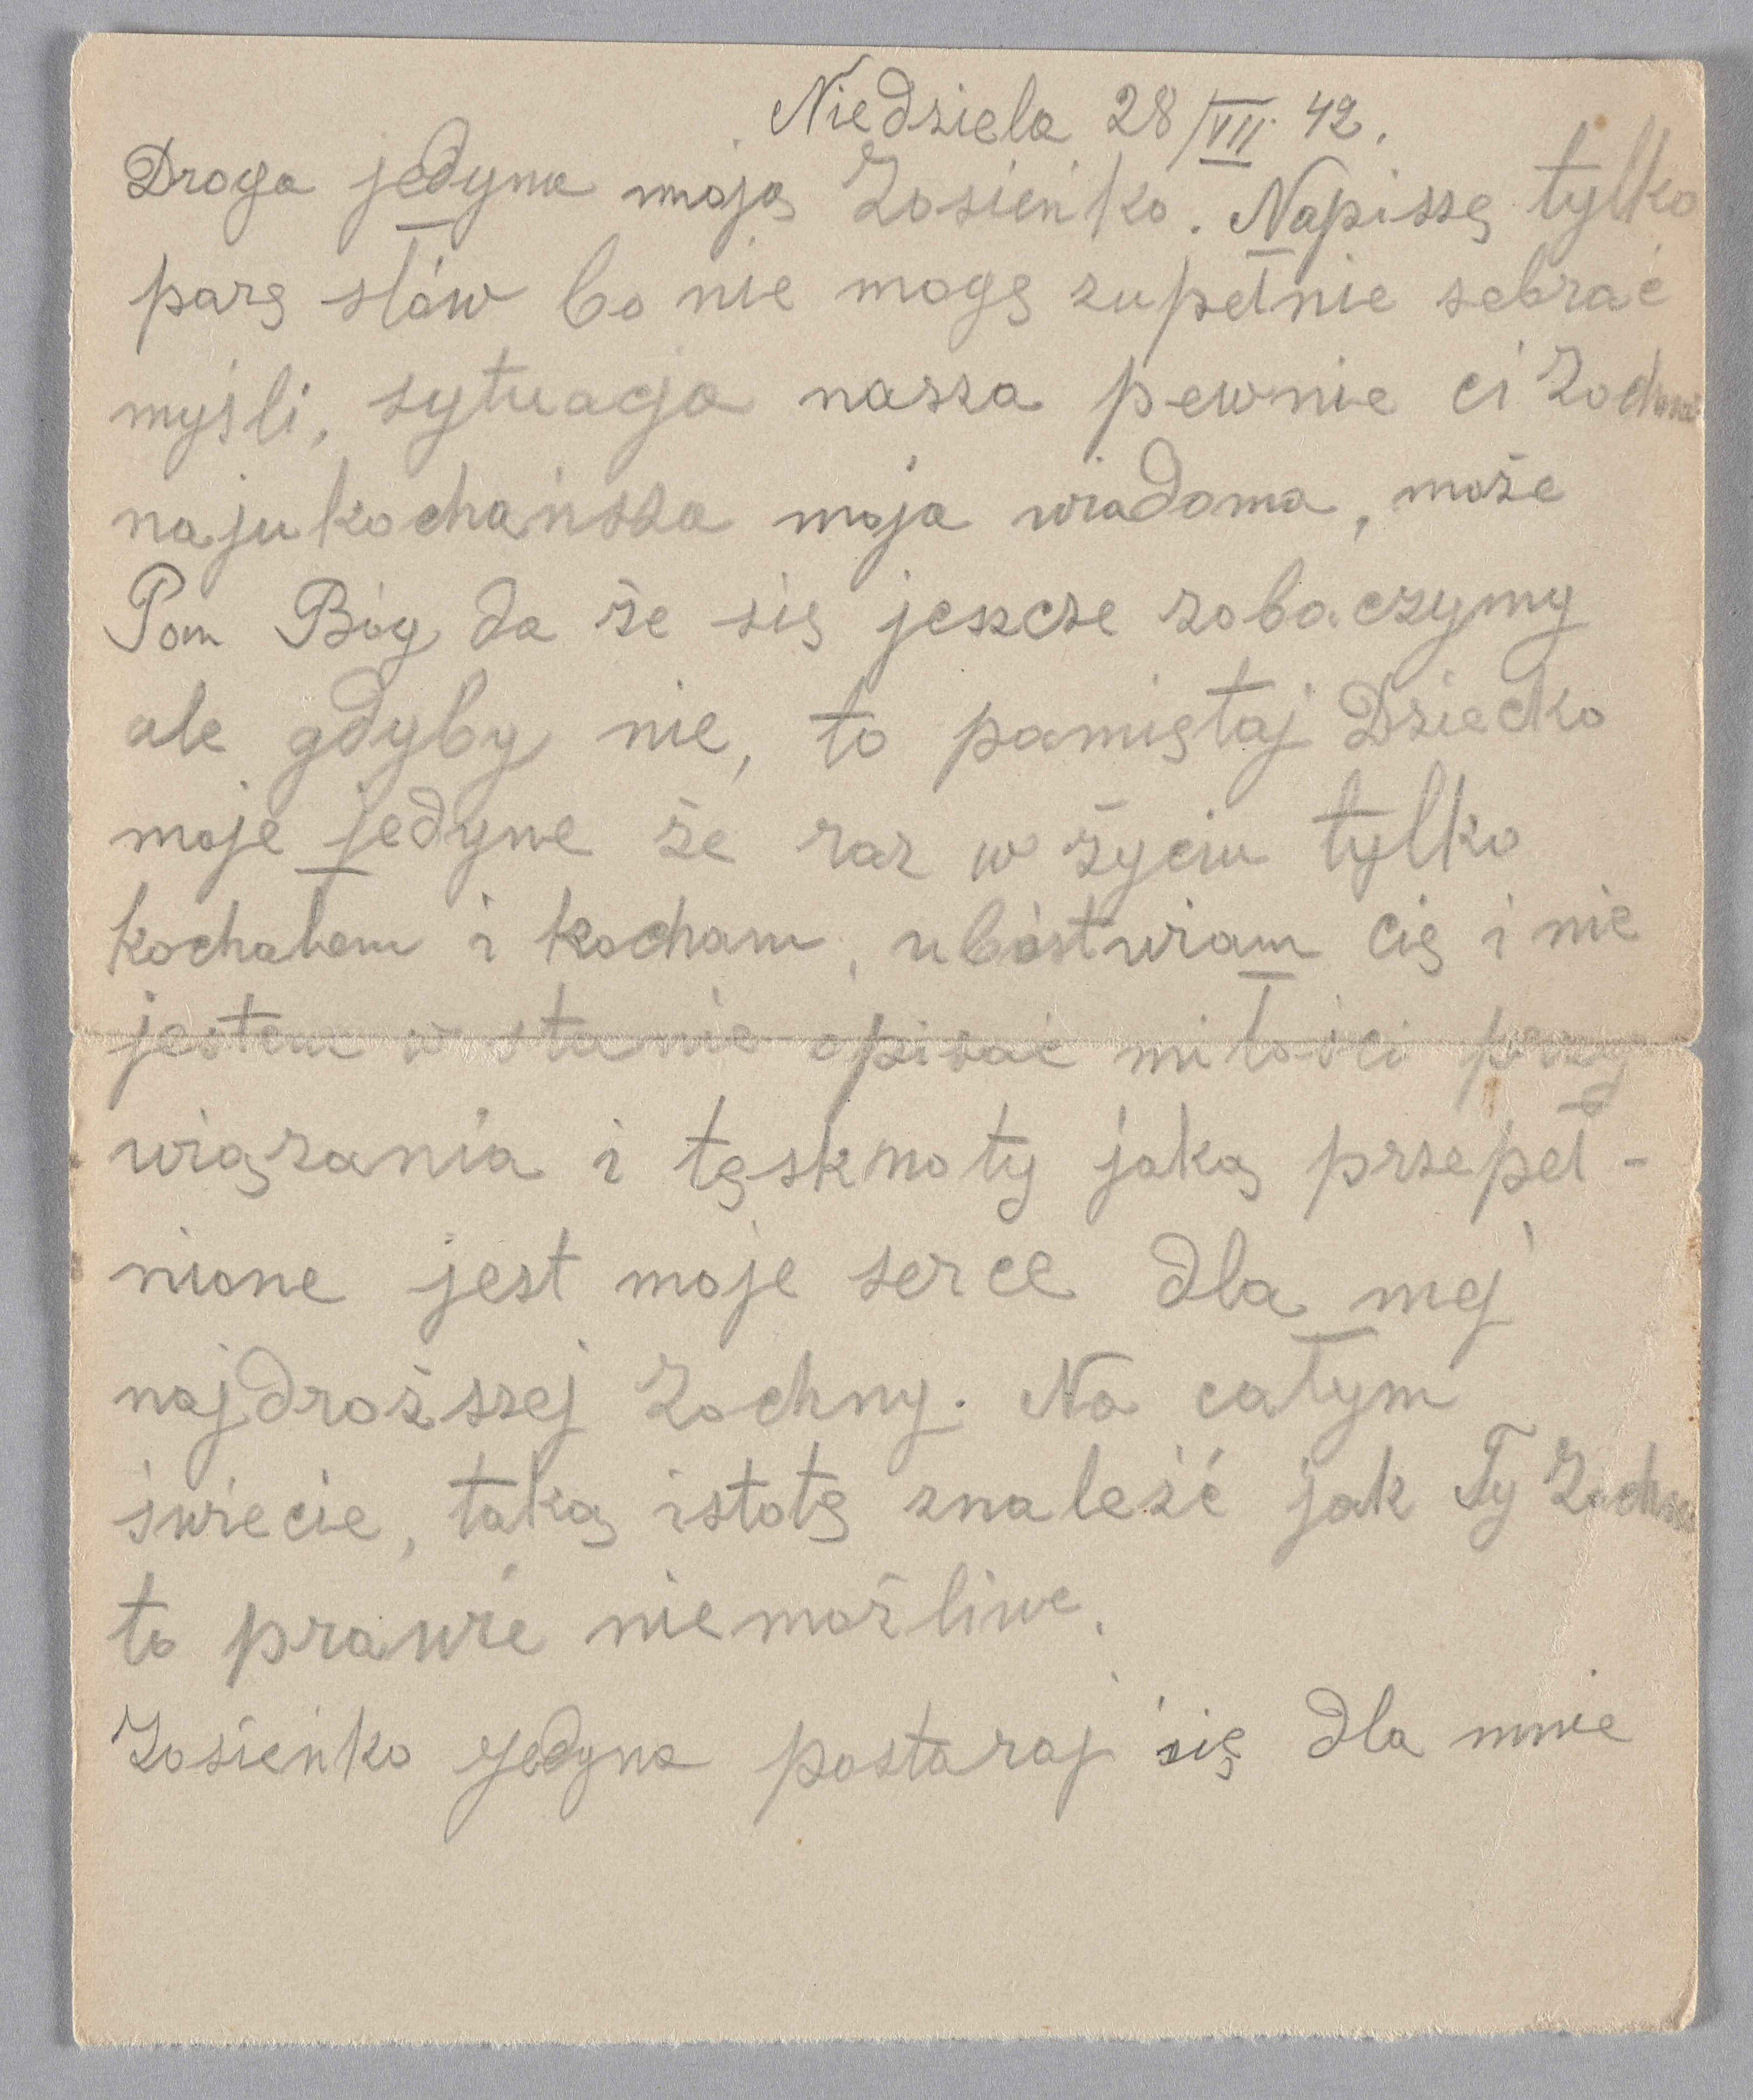 Niedziela 28/VII 42.
Droga jedyna moja Zosieńko. Napiszę tylko
parę słów bo nie mogę zupełnie zebrać
myśli, sytuacja nasza pewnie ci Zochno
najukochańsza moja wiadoma, może
Pan Bóg da że się jeszcze zobaczymy
ale gdyby nie, to pamiętaj Dziecko
moje jedyne że raz w życiu tylko
kochałem i kocham, ubóstwiam cię i nie
jestem w stanie opisać miłości przy
wiązania i tęsknoty jaką przepeł-
nione jest moje serce dla mej
najdroższej Zochny. Na całym
świecie, taką istotę znaleźć jak Ty Zochno
to prawie niemożliwe.
Zosieńko jedyna postaraj się dla mnie